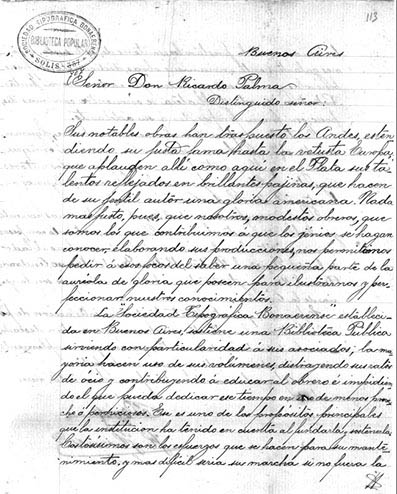 113
SOCIEDAD TIPOGRAFICA BONAERENSE
BIBLIOTECA POPULAR
SOLIS
Buenos Aires
Señor Don Ricardo Palma
Distinguido señor:
Sus notables obras han traspuesto los Andes, esten
diendo su justa fama hasta la vetusta Europa,
que aplauden allí como aquí en el Plata sus ta-
lentos reflejados en brillantes pajinas, que hacen
de su jentil autor una gloria americana. Nada
mas justo, pues, que nosotros, modestos obreros, que
somos los que contribuimos á que los jénios se hagan
conocer, elaborando sus producciones, nos permitimos
pedir á esos focos del saber una pequeña parte de la
aureola de gloria que poseen para ilustrarnos y per-
feccionar nuestros conocimientos.
La "Sociedad Tipográfica Bonaerense" estableci-
da en Buenos Aires, sostiene una Biblioteca Pública
sirviendo con particularidad á sus asociados, la ma-
yoría hacen uso de sus volúmenes, distrayendo sus ratos
de ocio y contribuyendo á educar al obrero é impidien
do el que pueda dedicar ese tiempo en de menos prove
cho ó perniciosos. Ese es uno de los propósitos principales
que la institucion ha tenido en cuenta al fundarla y sostenerla.
Costosísimos son los esfuerzos que se hacen para su mante-
nimiento, y mas dificil seria su marcha si no fuera la